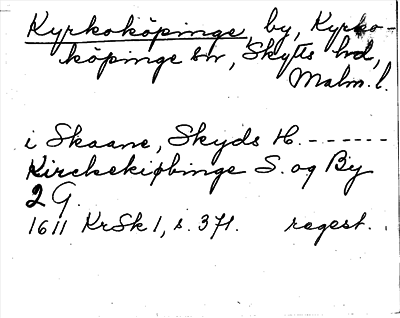 Kyrkoköpinge, by, Kyrko-
köpinge sn, Skytts hd,
Malm. l.
i Skaane, Skyds H. ------
Kirckekiøbinge S. og By
2 G.
1611 KrSk 1, s. 371. regest.